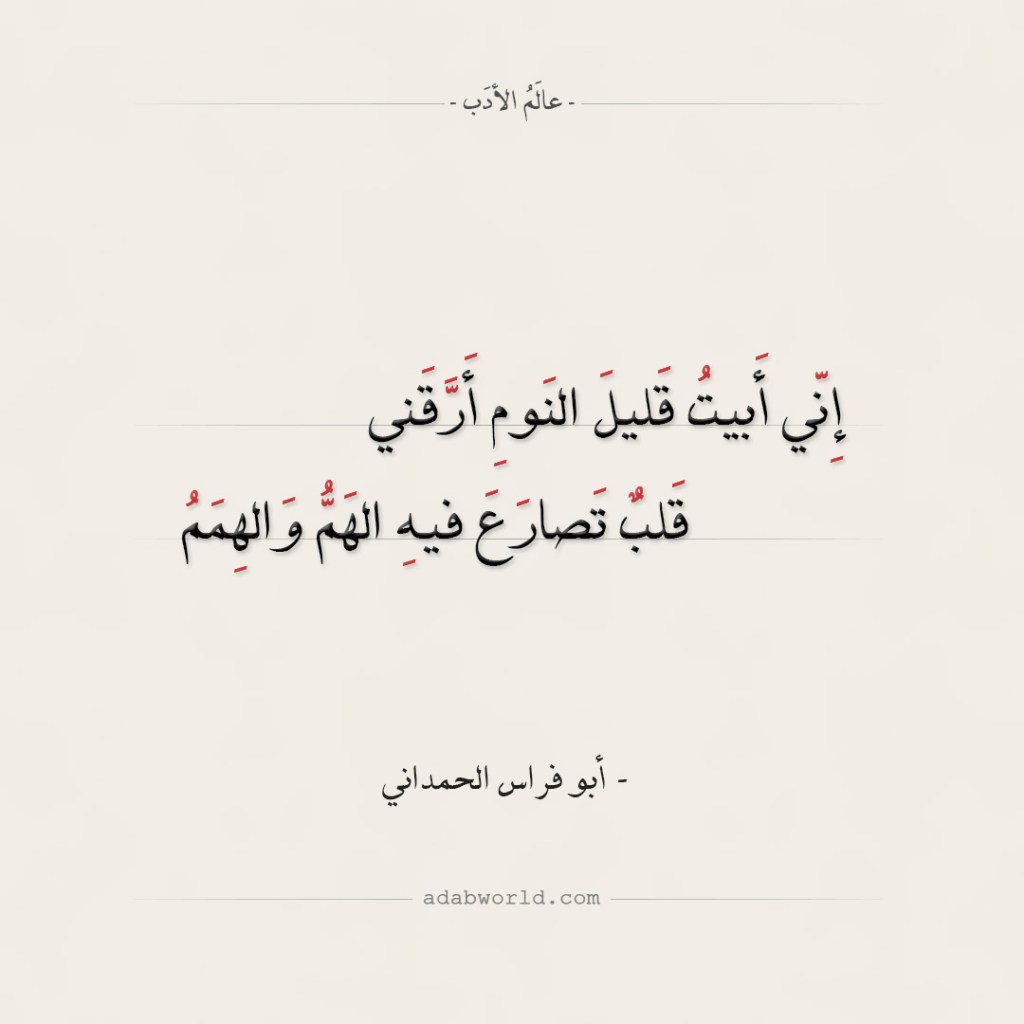 - عالَمُ الأدَب -
إِنّي أَبيتُ قَليلَ النَومِ أَرَّقَني
قَلبٌ تَصارَعَ فيهِ الهَمُّ وَالهِمَمُ
- أبو فراس الحمداني
adabworld.com